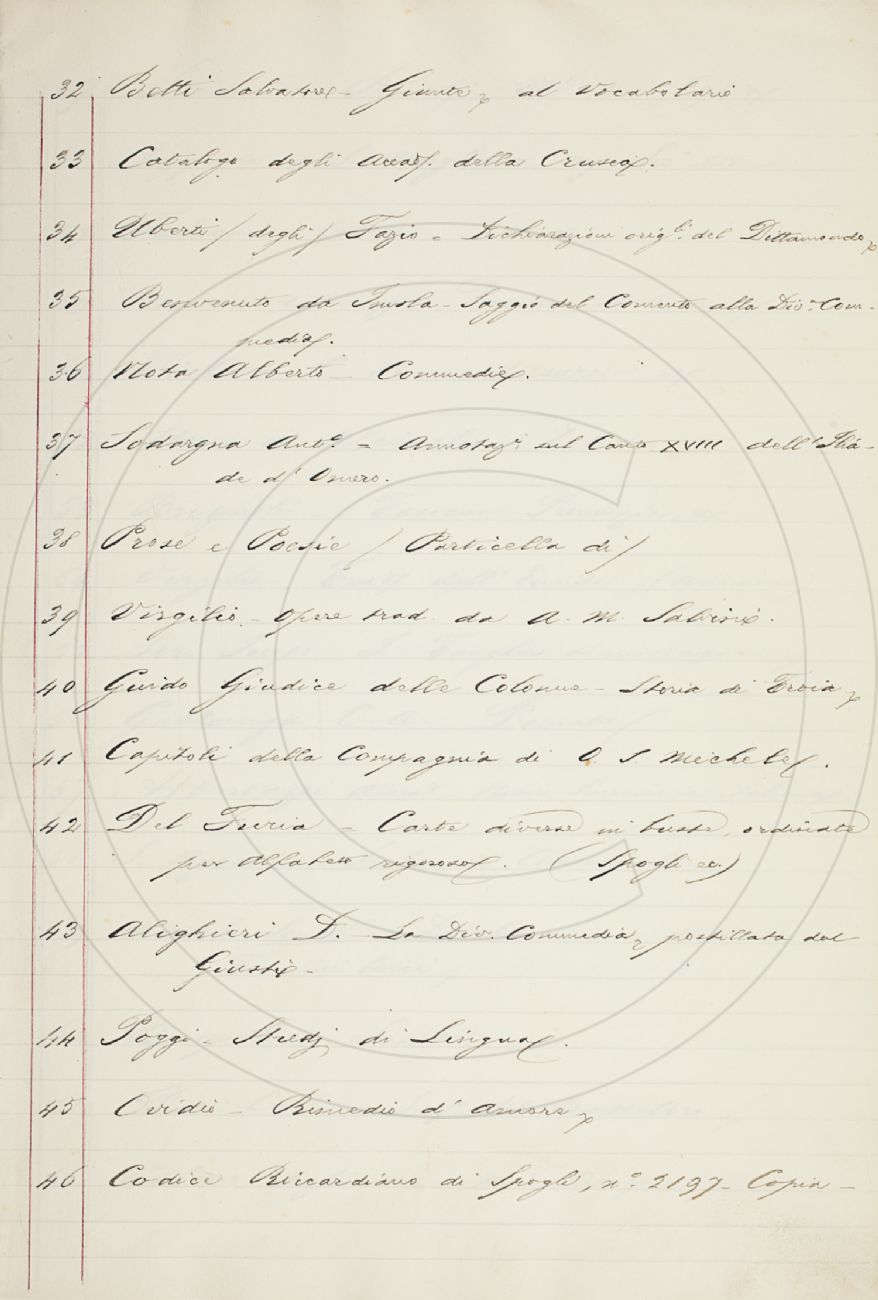 32 Betti Salvatore – Giunte, al Vocabolario
33 Catalogo degli Accad. della Crusca.
34 Uberti / degli / Fazio = Dichiarazioni orig.li del Dittamondo
35 Benvenuto da Imola – Saggio del Comento alla Div.a Com-
media.
36 Nota Alberto – Commedie.
37 Ant.o = Annotaz.i sul Canto XVIII dell'Ilia-
de d'Omero.
38 Prose e Poesie / Particella di /
39 Virgilio – Opere trad. da A. M. Salvini.
40 Guido Giudice delle Colonne – Storia di Troia,
41 Capitoli della Compagnia di O. S. Michele.
42 Del Furia = Carte diverse in buste, ordinate
per alfabeto rigoroso. (Spogli ec.)
43 Alighieri D. – La Div. Commedia, postillata dal
Giusti –
44 Poggi – Studj di Lingua.
45 Ovidio – Rimedio d'amore,
46 Codice Riccardiano di Spogli, n.o 2197 – Copia –